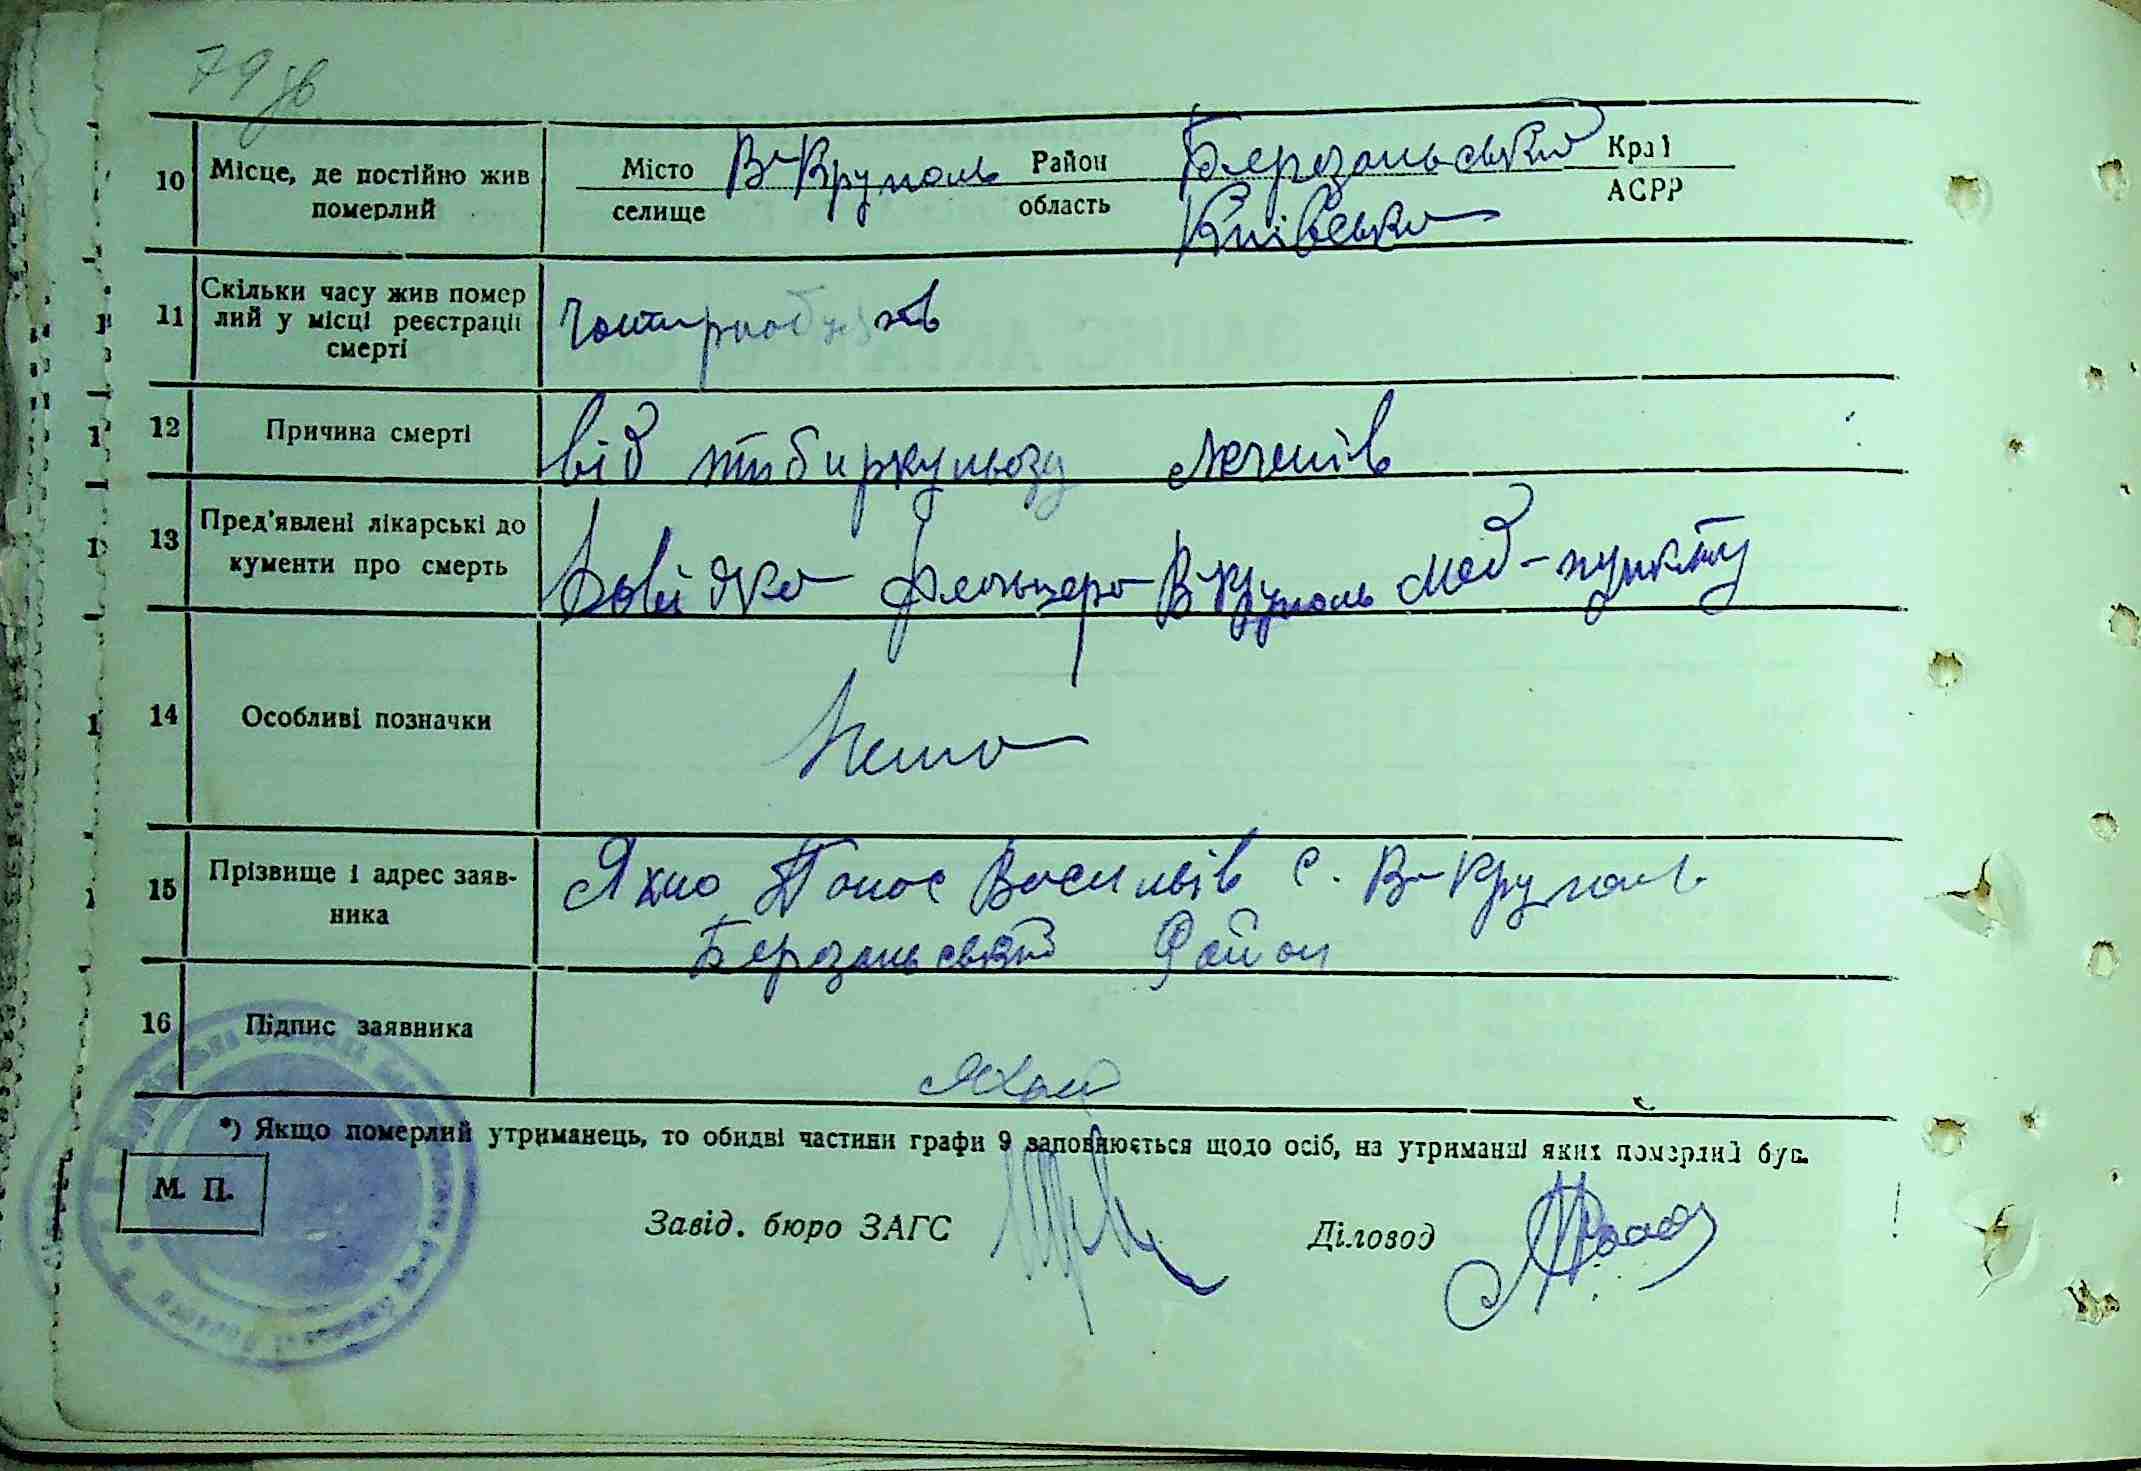 79 зв
10 Місце, де постійно жив померлий
Місто селище В-Круполь Район область Березанський Київсько Край АСРР
11 Скільки часу жив помер лий у місці реєстрації смерті
12 Причина смерті від тибиркульозу легенів
13 Пред'явлені лікарські до кументи про смерть Довідка фельшера В-Круполь мед-пункту
14 Особливі позначки Нема
15 Прізвище і адрес заяв-ника Яхно Панас Васильів с. В-Круполь
Березанський Район
16 Підпис заявника Яхно
*) Якщо померлий утриманець, то обидві частини графи 9 заповнюється щодо осіб, на утриманні яких померлий був.
М. П.
Завід. бюро ЗАГС Діловод